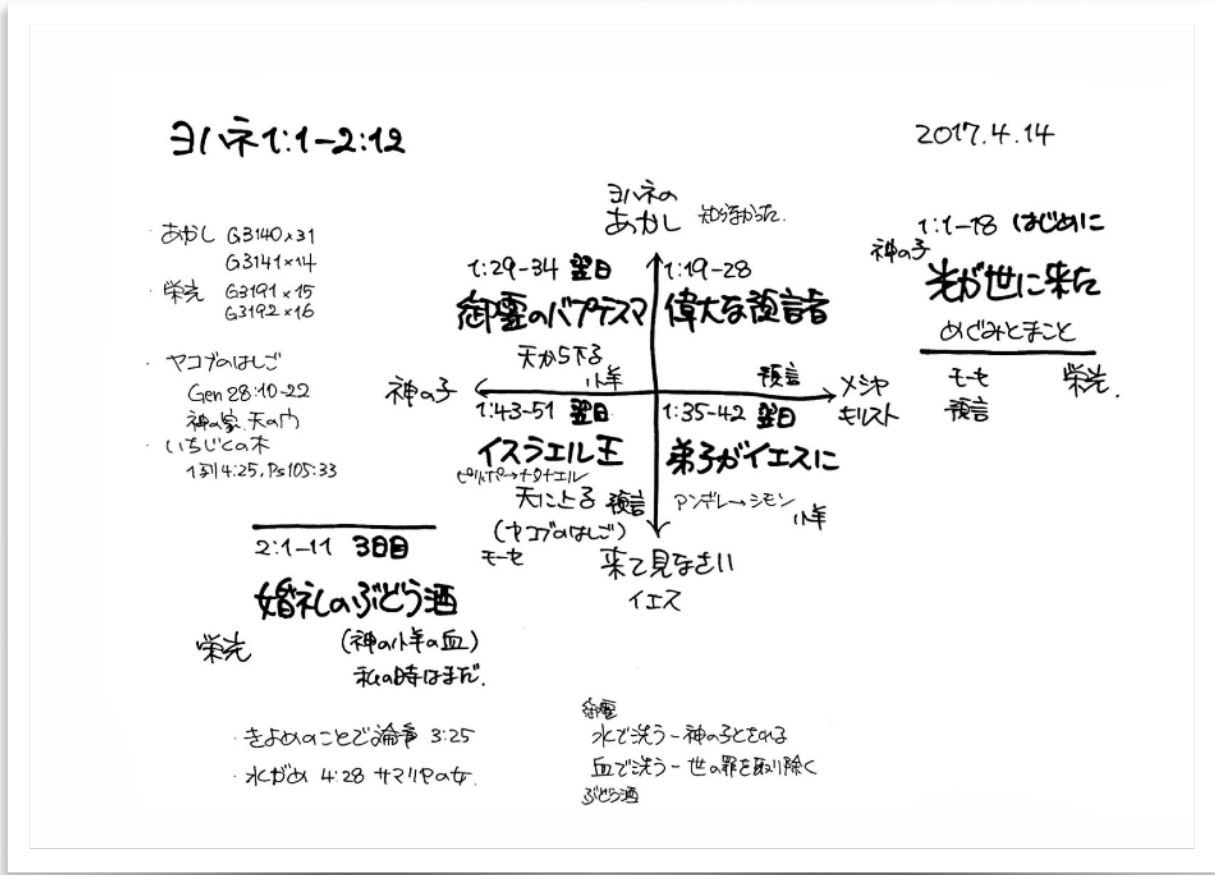 ヨハネ1:1-2:12
2017.4.14
・あかし G3140×31
G3141×14
・栄光 G3191×15
G3192×16
・ヤコブのはしご
Gen 28:10-22
神の家、天の門
・いちじくの木
1列4:25, Ps105:33
ヨハネの
あかし 知らなかった.
1:29-34 翌日
御霊のバプテスマ
天から下る
小羊
1:19-28
偉大な預言者
預言
神の子
メシヤ
キリスト
1:43-51 翌日
イスラエル王
ピリポ→ナタナエル
天に上る 預言
(ヤコブのはしご)
モーセ
1:35-42 翌日
弟子がイエスに
アンデレ→シモン
小羊
来て見なさい
イエス
1:1-18 はじめに
神の子
光が世に来た
めぐみとまこと
モーセ 栄光.
預言
2:1-11 3日目
婚礼のぶどう酒
栄光 (神の小羊の血)
私の時はまだ.
・きよめのことで論争 3:25
・水がめ 4:28 サマリヤの女.
御霊
水で洗う-神の子とされる
血で洗う-世の罪を取り除く
ぶどう酒